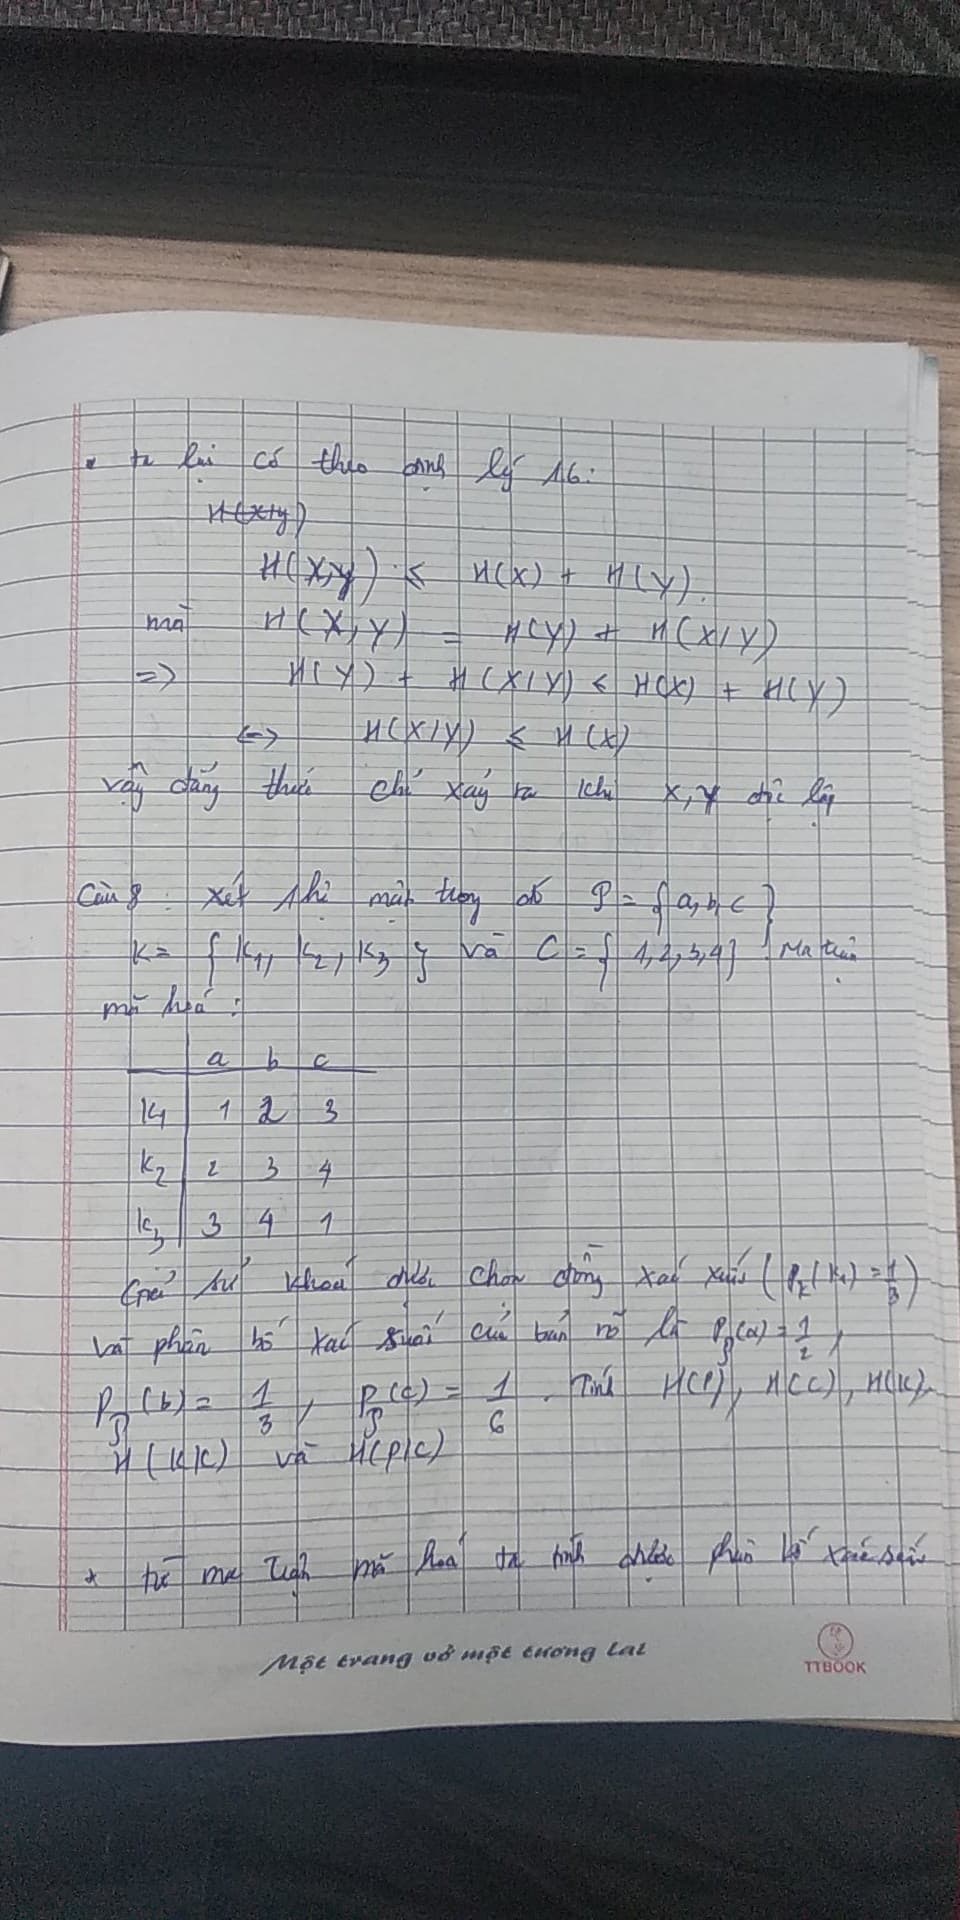 * ta lại có theo định lý 16:
H(X+Y)
H(X,Y) ≤ H(X) + H(Y).
mà H(X,Y) = H(Y) + H(X/Y)
=> H(Y) + H(X/Y) ≤ H(X) + H(Y)
<-> H(X/Y) ≤ H(X)
vậy đẳng thức chỉ xảy ra khi X, Y độc lập
Câu 8: xét 1 hệ mật trong đó P = { a, b, c }
K = { K1, K2, K3 } và C = { 1, 2, 3, 4 } Ma trận
mã hoá :
a b c
K1 1 2 3
K2 2 3 4
K3 3 4 1
Giả sử khoá được chọn đồng xác xuất ( PK(K1) = 1/3 )
và phân bố xác suất của bản rõ là PP(a) = 1/2 ,
PP(b) = 1/3 , PP(c) = 1/6 . Tính H(P), H(C), H(K),
H(K/C) và H(P/C)
* từ ma trận mã hoá ta tính được phân bố xác suất
Một trang vở một tương lai
TTBOOK